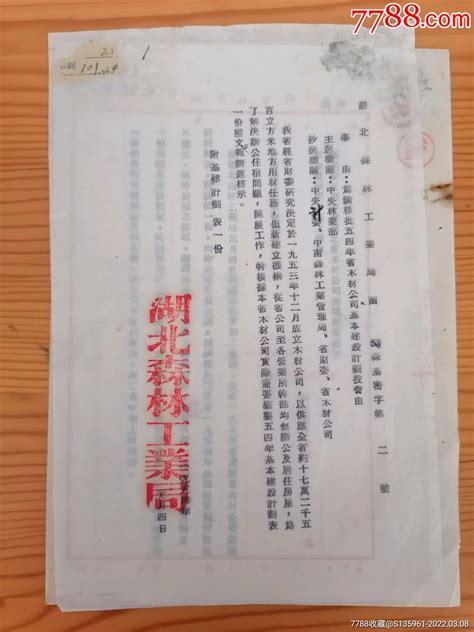 7788.com
1
101
湖北森林工業局函
森基密字第二號
事由：為請核批五四年省木材公司基本建設計劃投資由
主送機關：中央林業部
抄送機關：中央財委、中南森林工業管理局、省財委、省木材公司
我省經省財委研究決定於一九五三年十二月成立木材公司，以供應全省約十七萬二千五
百立方米地方用材任務，但新建立機構，從省公司至各營業所幹部均無辦公及居住房屋，為
了解決辦公住宿問題，開展工作，特根據本省木材公司實際需要編製五四年基本建設計劃表
一份隨文報請速核示。
附基建計劃表一份
湖北森林工業局
元月四日
7788收藏@S135961-2022.03.08